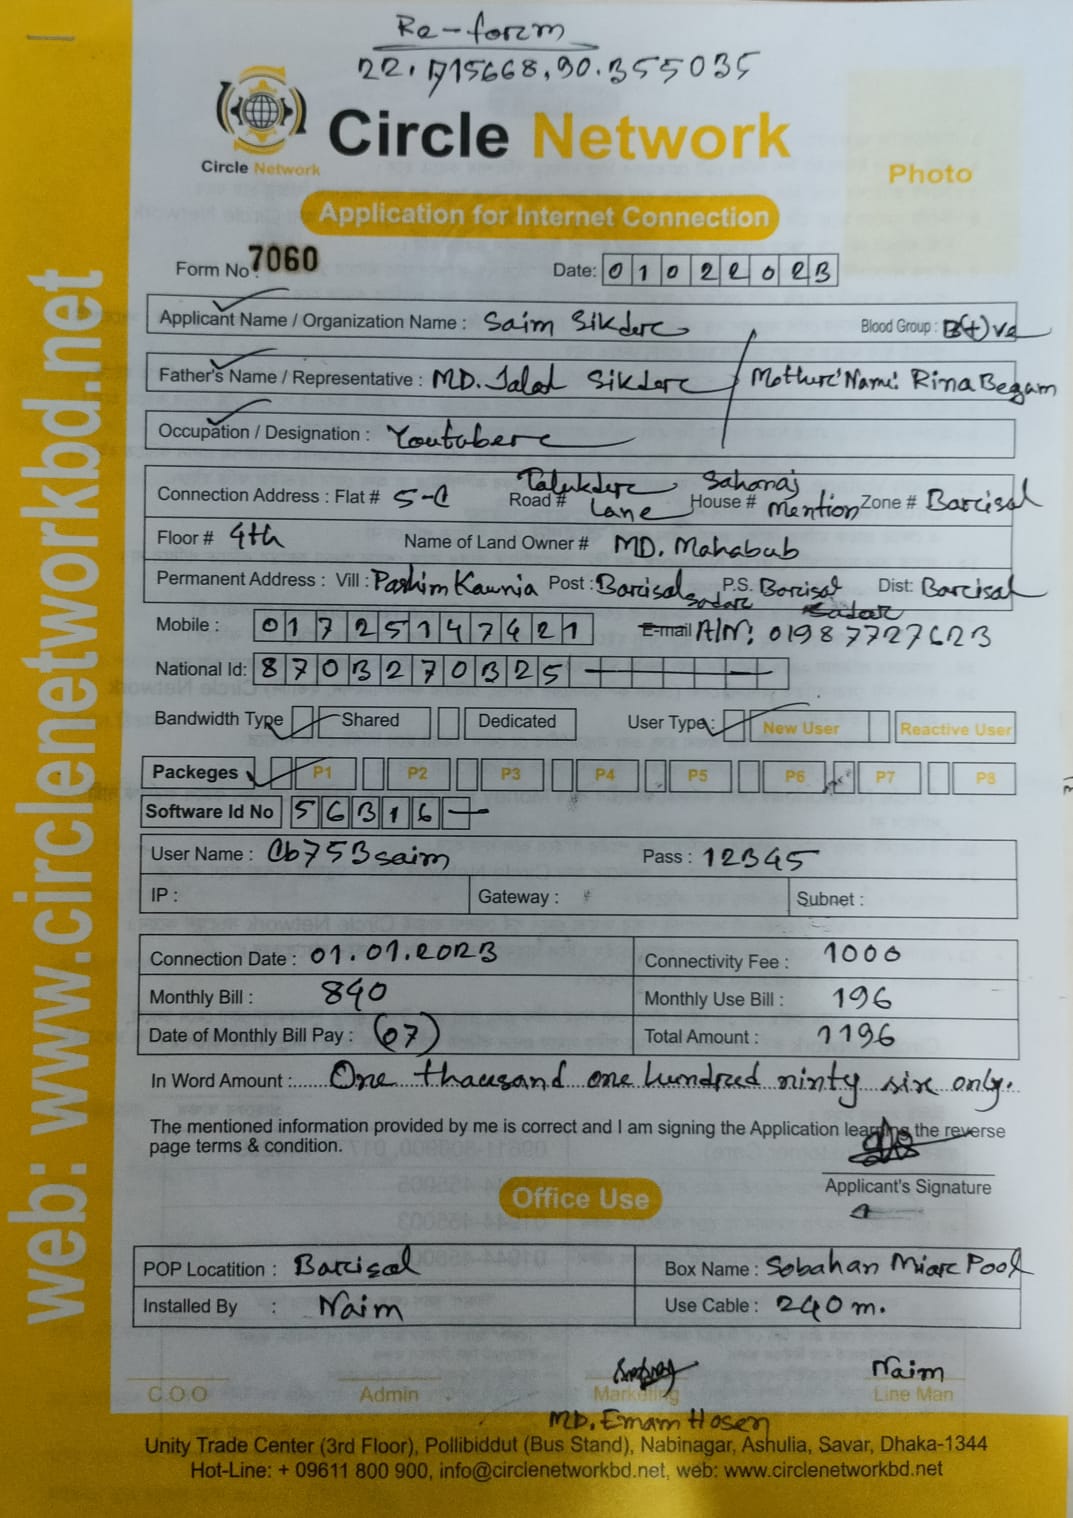 Re-form
22.715668,90.355035
Circle Network
Circle Network
Photo
Application for Internet Connection
Form No : 7060
Date: 01022023
Applicant Name / Organization Name : Saim Sikder
Blood Group : B(+)ve
Father's Name / Representative : MD. Jalal Sikder
Mother Name: Rina Begam
Occupation / Designation : Youtuber
Connection Address : Flat # 5-C Road # Talukder Lane House # Sahanaj Mention Zone # Barisal
Floor # 4th Name of Land Owner # MD. Mahabub
Permanent Address : Vill : Pashim Kawnia Post : Barisal sadar P.S. Barisal Sadar Dist: Barisal
Mobile : 01725147421 E-mail A/N: 01987727623
National Id: 8703270325
Bandwidth Type Shared Dedicated User Type: New User Reactive User
Packeges P1 P2 P3 P4 P5 P6 P7 P8
Software Id No 56316
User Name : Cb753saim Pass : 12345
IP : Gateway : Subnet :
Connection Date : 01.01.2023 Connectivity Fee : 1000
Monthly Bill : 840 Monthly Use Bill : 196
Date of Monthly Bill Pay : (07) Total Amount : 1196
In Word Amount :...... One thausand one hundred ninty six only.
The mentioned information provided by me is correct and I am signing the Application learning the reverse
page terms & condition.
Applicant's Signature
Office Use
POP Locatition : Barisal Box Name : Sobahan Miar Pool
Installed By : Naim Use Cable : 240 m.
Naim
C.O.O Admin Marketing Line Man
MD. Emam Hosen
Unity Trade Center (3rd Floor), Pollibiddut (Bus Stand), Nabinagar, Ashulia, Savar, Dhaka-1344
Hot-Line: + 09611 800 900, info@circlenetworkbd.net, web: www.circlenetworkbd.net
web: www.circlenetworkbd.net